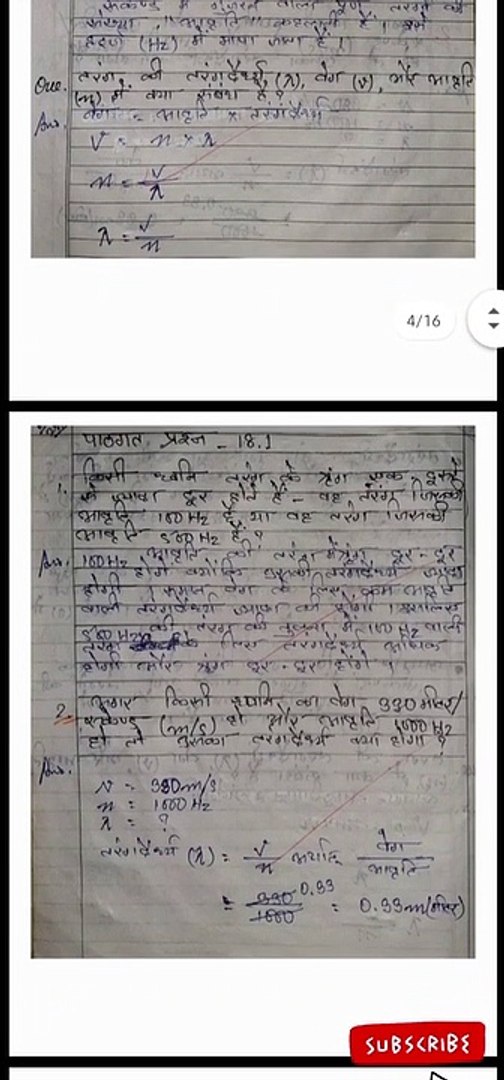 सेकेण्ड में गुजरने वाली पूर्ण तरंगों की
संख्या "आवृत्ति" कहलाती है । इसे
हर्ट्ज (Hz) में मापा जाता है ।
Que. तरंग की तरंगदैर्ध्य (λ), वेग (v), और आवृत्ति
(n) में क्या संबंध है ?
Ans. वेग = आवृत्ति × तरंगदैर्ध्य
V = n × λ
n = V/λ
λ = V/n
4/16
पाठगत प्रश्न - 18.1
1. किसी ध्वनि तरंग के श्रृंग एक दूसरे
से ज्यादा दूर होते हैं - वह तरंग जिसकी
आवृत्ति 100 Hz है या वह तरंग जिसकी
आवृत्ति 500 Hz है ?
Ans. 100 Hz आवृत्ति की तरंग में श्रृंग दूर-दूर
होंगे क्योंकि इसकी तरंगदैर्ध्य ज्यादा
होगी । समान वेग के लिए कम आवृत्ति
वाली तरंगदैर्ध्य ज्यादा की होगी । इसलिए
500 Hz की तरंग की तुलना में 100 Hz वाली
तरंग के लिए तरंगदैर्ध्य अधिक
होगी और श्रृंग दूर-दूर होंगे ।
2. अगर किसी ध्वनि का वेग 330 मीटर/
सेकेण्ड (m/s) हो और आवृत्ति 1000 Hz
हो तो उसका तरंगदैर्ध्य क्या होगा ?
Ans.
v = 330 m/s
n = 1000 Hz
λ = ?
तरंगदैर्ध्य (λ) = V/n अर्थात् वेग/आवृत्ति
= 330/1000 0.33 = 0.33m (मीटर)
SUBSCRIBE